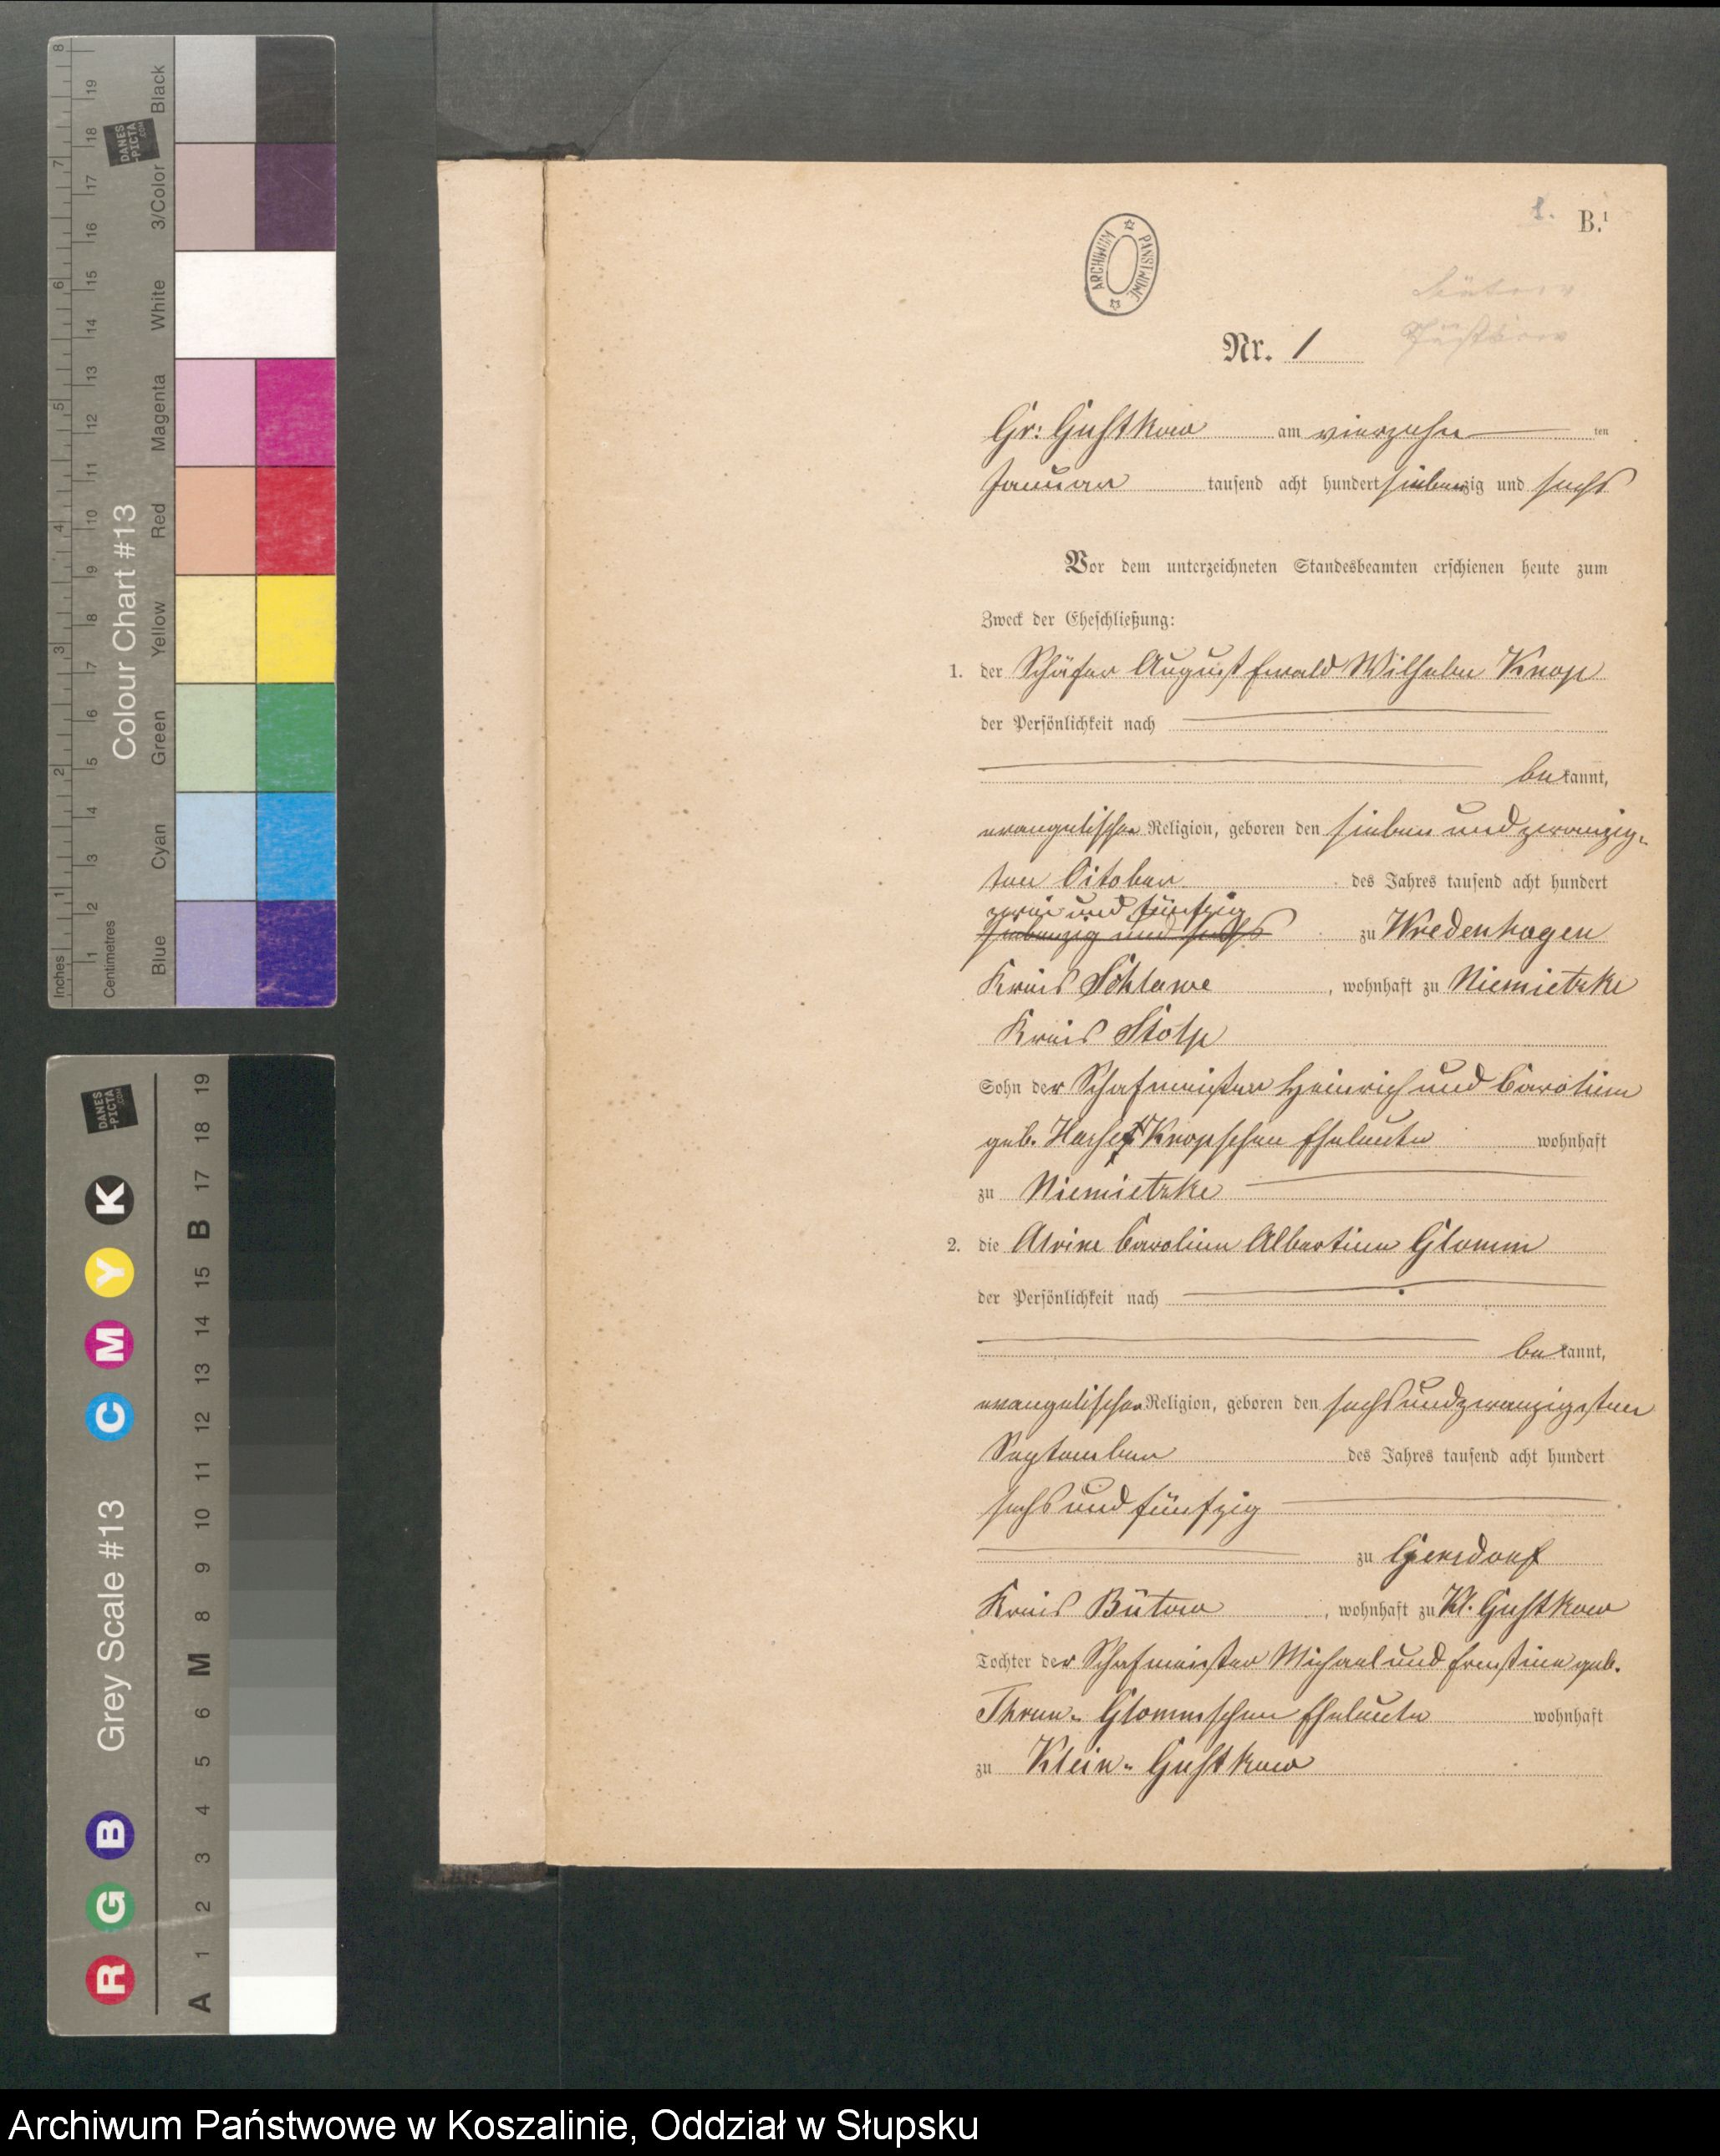 8
7
6
5
4
3
2
1
Inches
19
18
17
16
15
14
13
12
11
10
9
8
7
6
5
4
3
2
1
Centimetres
Colour Chart #13
DANES
-PICTA
.COM
Black
3/Color
White
Magenta
Red
Yellow
Green
Cyan
Blue
DANES
-PICTA
.COM
R G B
Grey Scale #13
C M Y K
A 1 2 3 4 5 6 M 8 9 10 11 12 13 14 15 B 17 18 19
1. B.¹
ARCHIWUM PAŃSTWOWE
Bütow
Nr. 1
Gr: Gustkow am vierzehn ten
Januar tausend acht hundert siebenzig und sechs
Vor dem unterzeichneten Standesbeamten erschienen heute zum
Zweck der Eheschließung:
1. der Schäfer August Ewald Wilhelm Knop
der Persönlichkeit nach
bekannt,
evangelischer Religion, geboren den sieben und zwanzig-
sten October des Jahres tausend acht hundert
zwei und fünfzig
siebenzig und sechs zu Wredenhagen
Kreis Schlawe, wohnhaft zu Niemietzke
Kreis Stolp
Sohn der Schafmeister Heinrich und Caroline
geb. Knopschen Eheleute wohnhaft
zu Niemietzke
2. die Alvine Caroline Albertine Glomm
der Persönlichkeit nach
bekannt,
evangelischer Religion, geboren den sechs und zwanzigsten
September des Jahres tausend acht hundert
sechs und fünfzig
zu Gersdorf
Kreis Bütow, wohnhaft zu Kl. Gustkow
Tochter der Schafmeister Michael und Ernstine geb.
Thrun- Glommschen Eheleute wohnhaft
zu Klein- Gustkow
Archiwum Państwowe w Koszalinie, Oddział w Słupsku